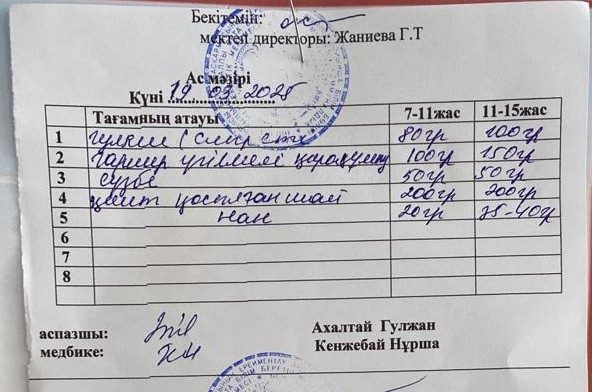 Бекітемін:
мектеп директоры: Жаниева Г.Т
Ас мәзірі
Күні 19 03 2025
Тағамның атауы 7-11жас 11-15жас
1 гуляш (сиыр еті 80гр 100гр
2 гарнир үгілмелі қарақұмық 100гр 150гр
3 сүзбе 50гр 50гр
4 сүт қосылған шай 200гр 200гр
5 нан 20гр 35-40гр
6
7
8
аспазшы: Ахалтай Гулжан
медбике: Кенжебай Нұрша